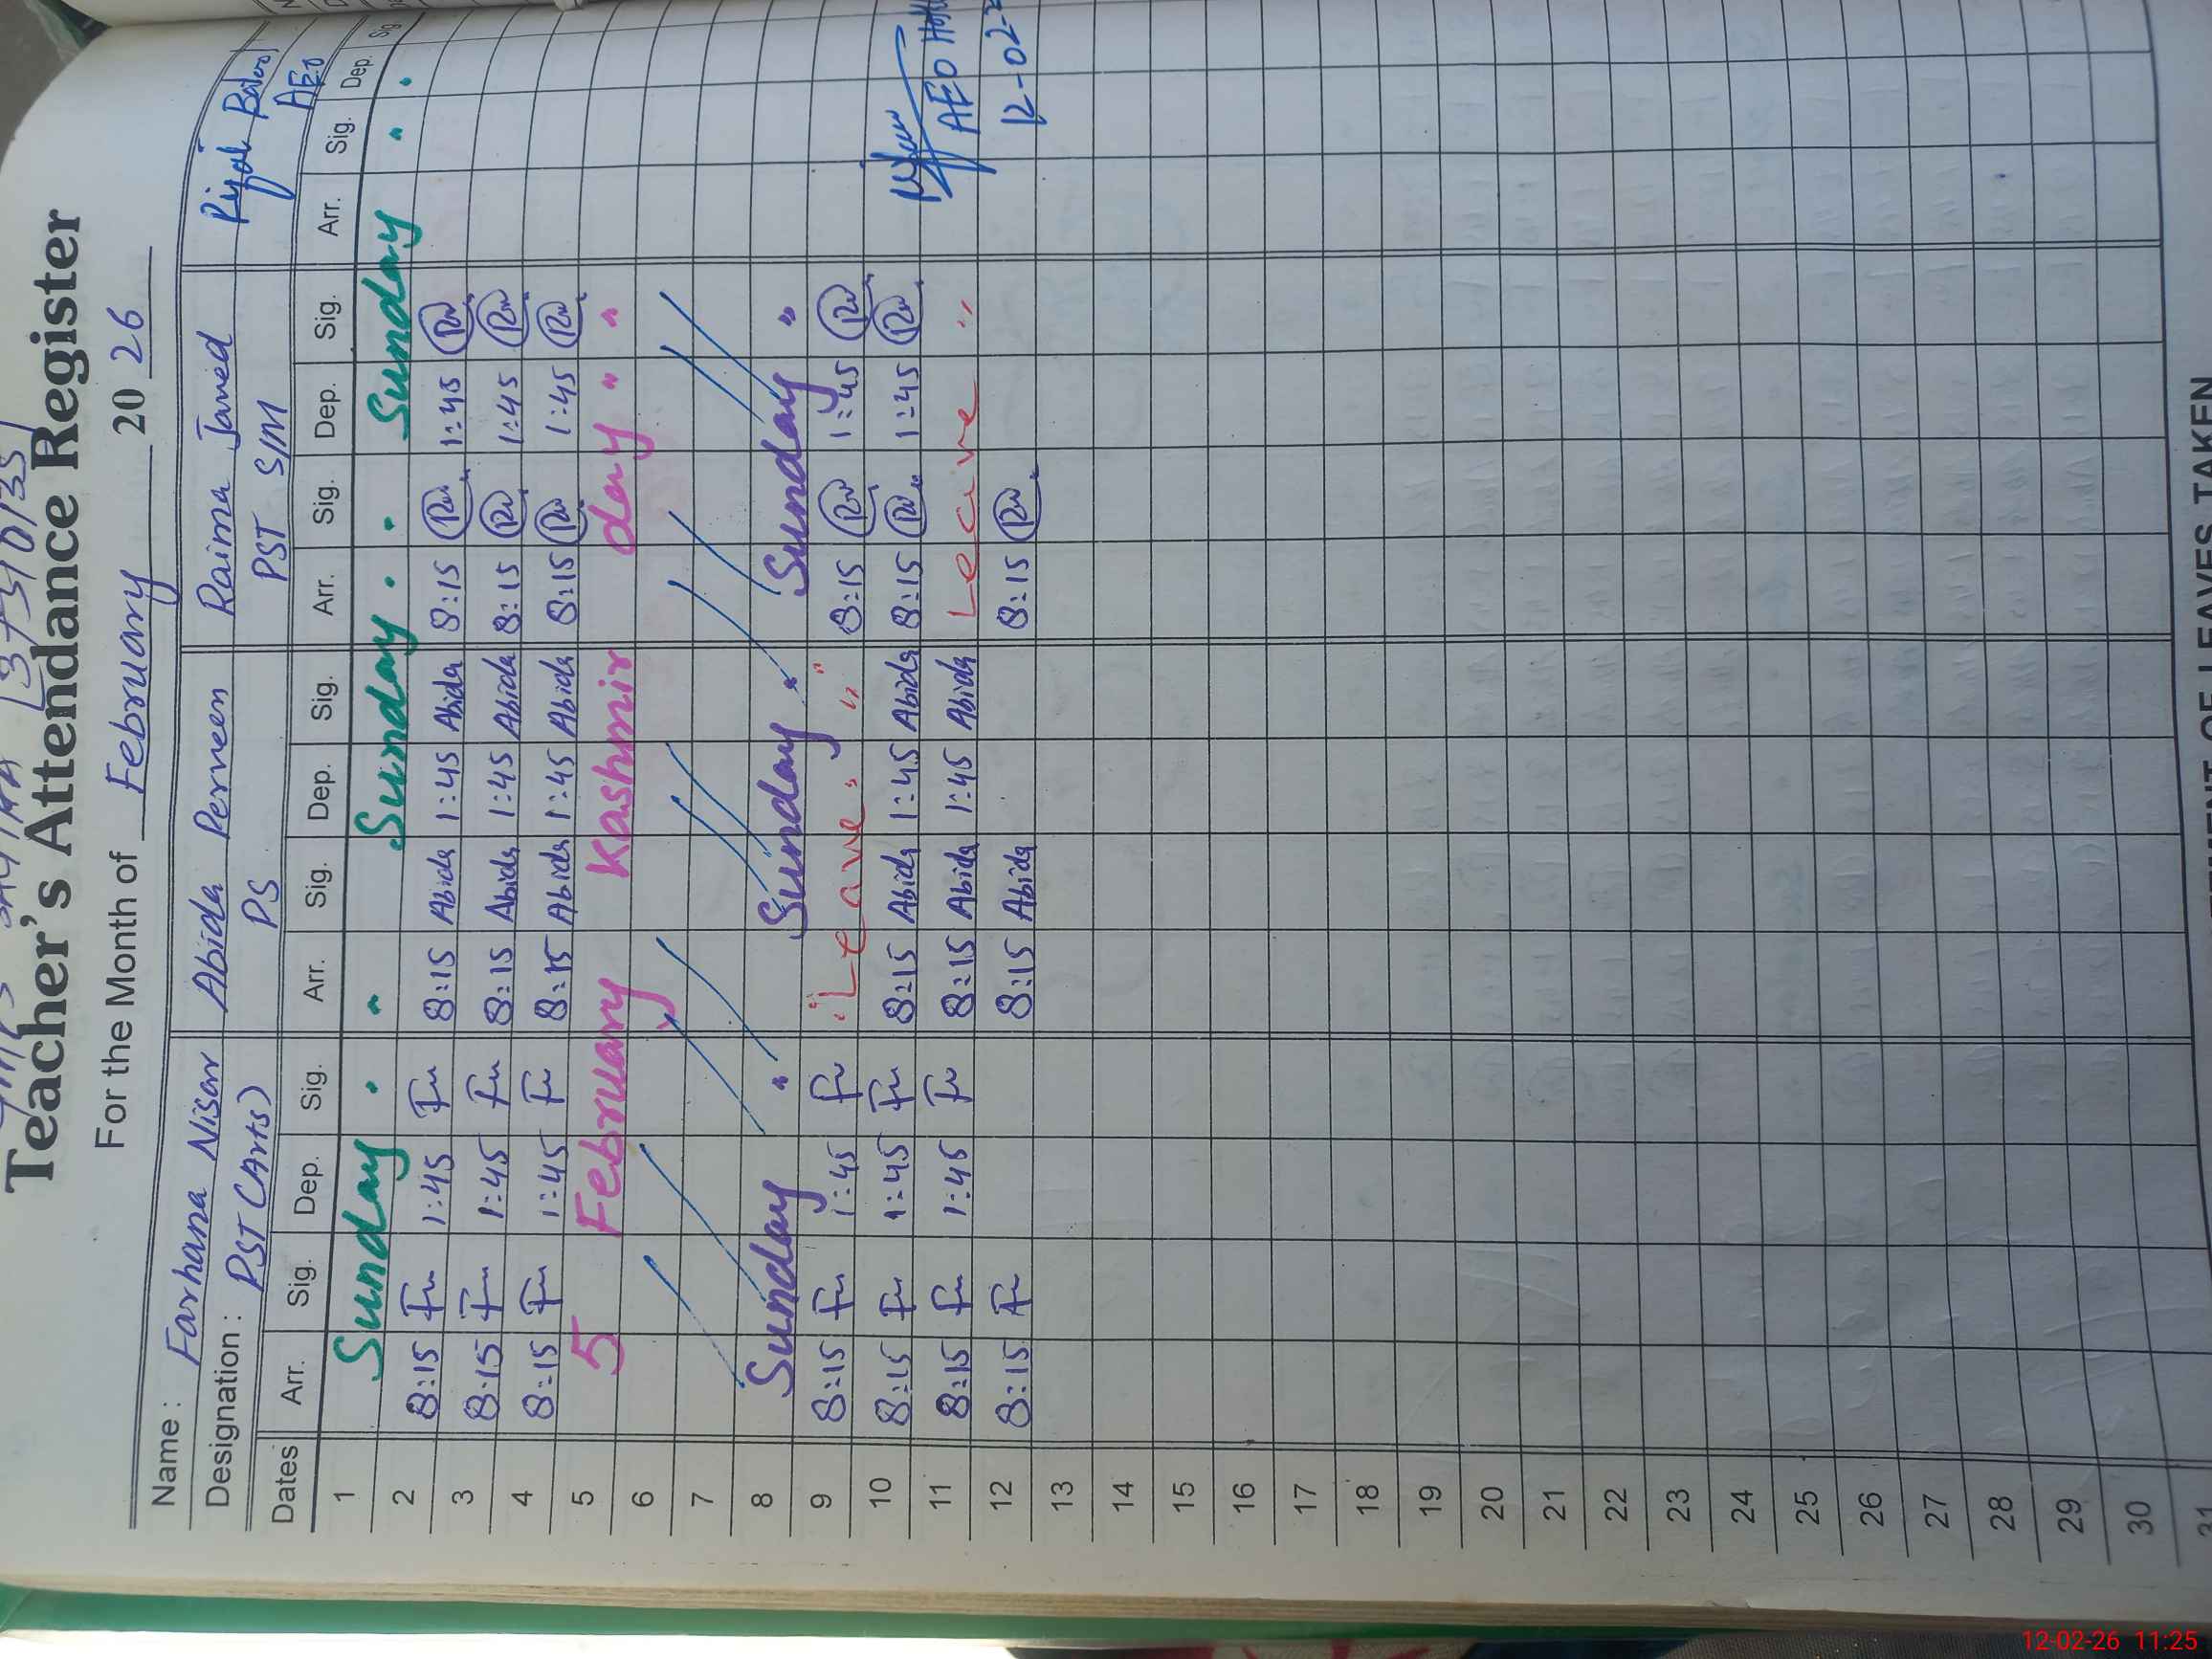 Teacher's Attendance Register
For the Month of February 2026
Name : Farhana Nisar Abida Perveen Raima Javed
Designation : PST (Arts) PS PST S/M AEO
Dates Arr. Sig. Dep. Sig. Arr. Sig. Dep. Sig. Arr. Sig. Dep. Sig. Arr. Sig. Dep. Sig
1 Sunday " Sunday " Sunday "
2 8:15 Fu 1:45 Fu 8:15 Abida 1:45 Abida 8:15 1:45
3 8:15 Fu 1:45 Fu 8:15 Abida 1:45 Abida 8:15 1:45
4 8:15 Fu 1:45 Fu 8:15 Abida 1:45 Abida 8:15 1:45
5 5 February Kashmir day " "
6
7
8 Sunday " Sunday " Sunday "
9 8:15 Fu 1:45 Fu Leave " 8:15 1:45
10 8:15 Fu 1:45 Fu 8:15 Abida 1:45 Abida 8:15 1:45
11 8:15 Fu 1:45 Fu 8:15 Abida 1:45 Abida Leave " AEO
12 8:15 Fu 8:15 Abida 8:15 12-02-
13
14
15
16
17
18
19
20
21
22
23
24
25
26
27
28
29
30
31
OF LEAVES TAKEN
12-02-26 11:25